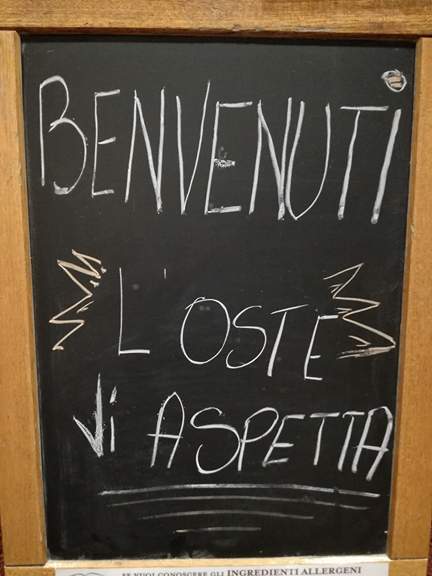 BENVENUTI
L'OSTE
Vi ASPETTA
SE VUOI CONOSCERE GLI INGREDIENTI ALLERGENI